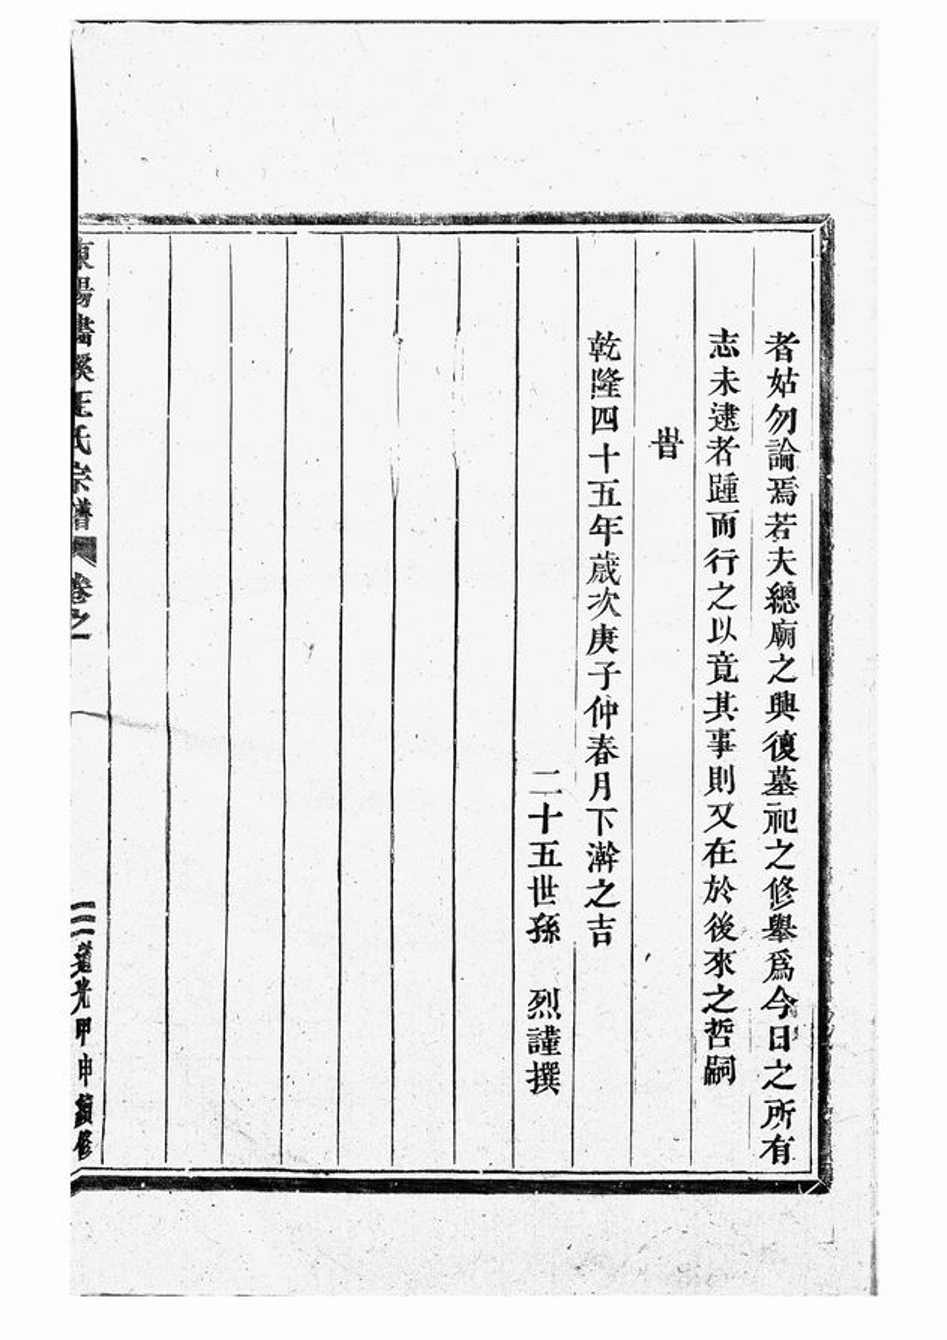 者姑勿論焉若夫總廟之興復墓祀之修舉爲今日之所有
志未逮者踵而行之以竟其事則又在於後來之哲嗣
旹
乾隆四十五年歲次庚子仲春月下澣之吉
二十五世孫 烈謹撰
東陽畫溪王氏宗譜 卷之
道光甲申續修